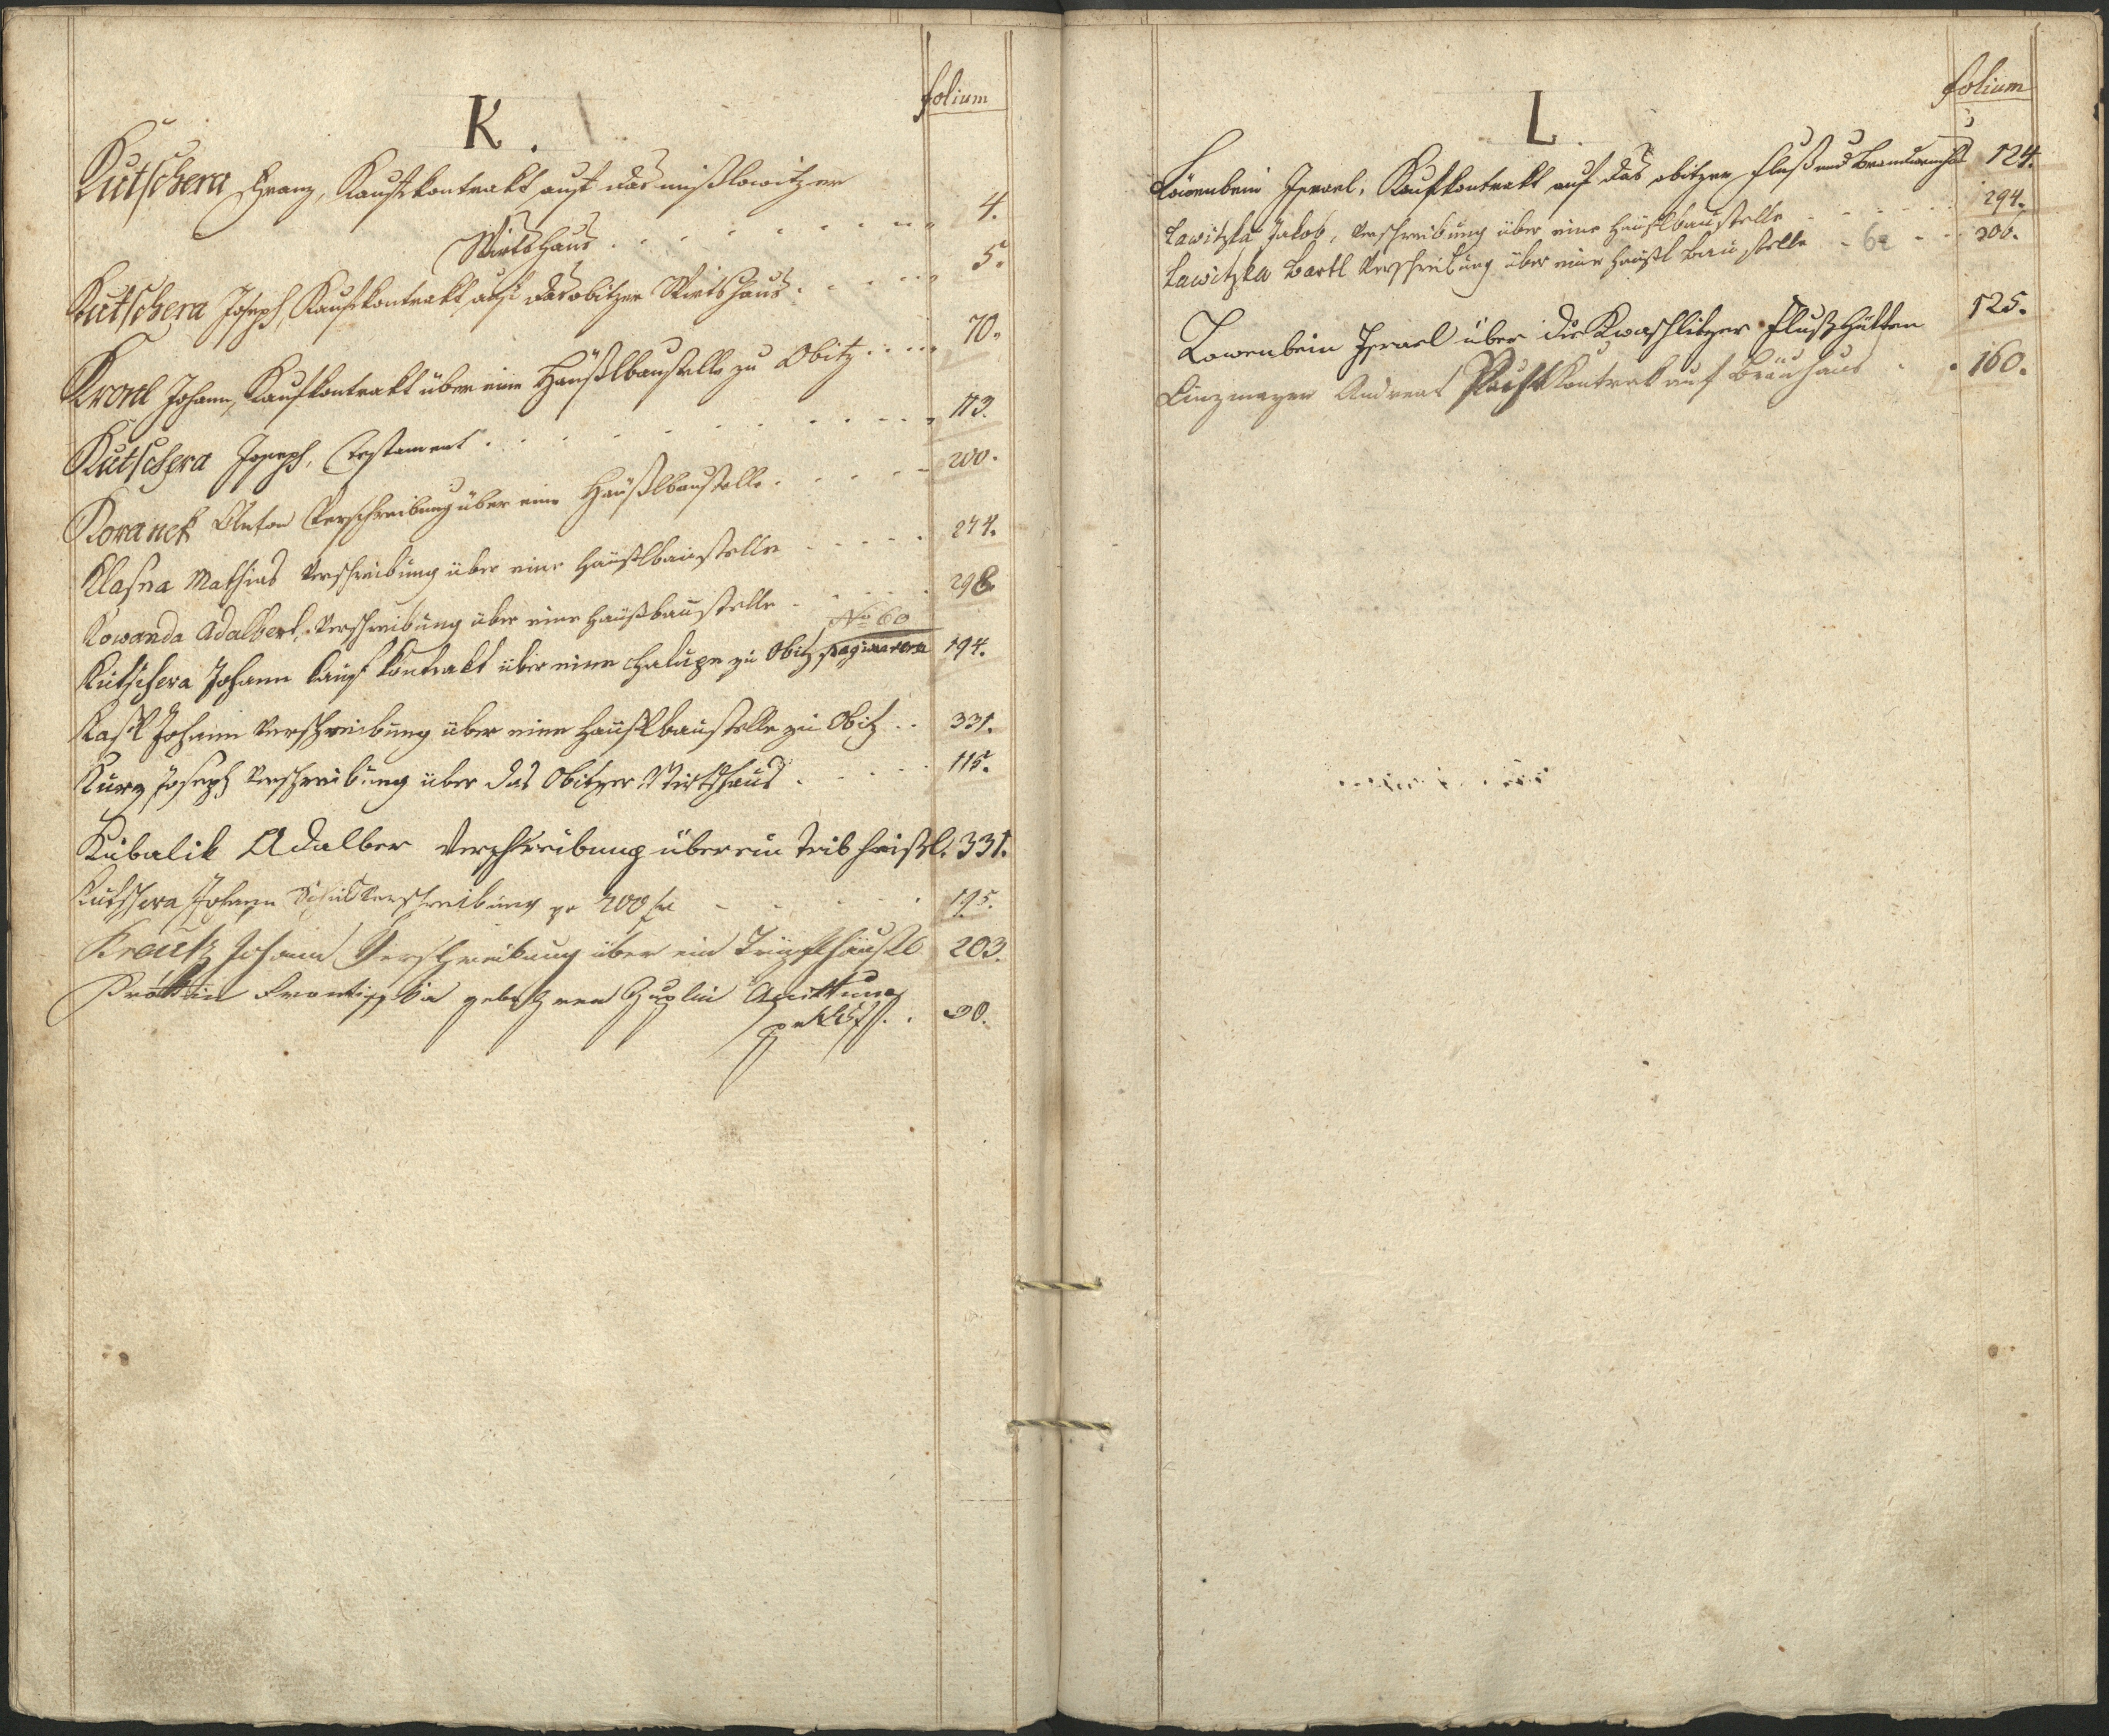 K.
folium
Kutschera Franz, Kaufkontrakt auf das mißlowitzer
Wirtshaus 4.
Kutschera Joseph, Kaufkontrakt auf das obitzer Wirtshaus 5.
Johann, Kaufkontrakt über eine Häußlbaustelle zu Obitz 70.
Kutschera Joseph, Testament 113.
Koranek Anton Verschreibung über eine Häußlbaustelle 200.
Klasna Mathias Verschreibung über eine Häußlbaustelle 274.
Kowanda Adalbert, Verschreibung über eine Häußbaustelle 298
No 60
Kutschera Johann Kauf Kontrakt über eine Chalupe zu Obitz 194.
Johann Verschreibung über eine Häuslbaustelle zu Obitz 331.
Kurz Joseph Verschreibung über das Obitzer Wirtshaus 115.
Kubalik Adalber Verschreibung über ein heißl. 331.
Kutschera Johann Schuldverschreibung pr 200 fl 195.
Krautz Johann Verschreibung über ein 203.
Quittung
30.
L.
folium
Löwenbein Israel, Kaufkontrakt auf das obitzer Fluß und 124.
Lawitzka Jakob, Verschreibung über eine Häuslbaustelle 294.
Lawitzka Bartl Verschreibung über eine Häußl Baustelle 62 300.
Lowenbein Israel über die Kwaschlitzer Flußhütten 125.
Linzmayer Andreas Pacht Kontrakt auf Bräuhaus 160.